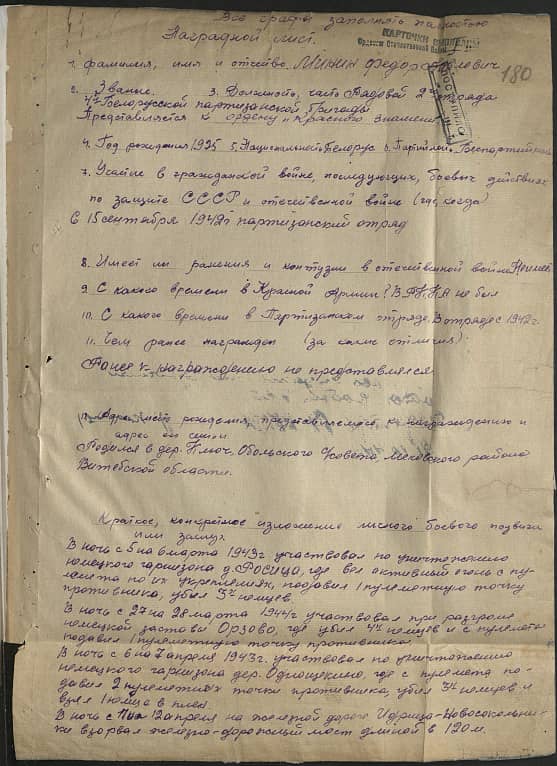 Все графы заполнять полностью
Наградной лист.
КАРТОЧКИ
Ордена Отечественной Войны
180
1. Фамилия, имя и отчество. Минин Федор Павлович
2. Звание. 3. Должность, часть Рядовой 2го отряда
4й Белорусской партизанской бригады
Представляется к ордену „Красного знамени
4. Год рождения 1925 5. Национальность Белорус 6. Партийность Беспартийный
7. Участие в гражданской войне, последующих, боевых действиях
по защите СССР и отечественной войне (где, когда)
С 15 сентября 1942г партизанский отряд
8. Имеет ли ранения и контузии в отечественной войне Не имеет
9. С какого времени в Красной Армии? В РККА не был
10. С какого времени в Партизанском отряде. В отряде с 1942г.
11. Чем ранее награжден (за какие отличия):
Ранее к награждению не представлялся
Адрес места рождения, представляемого к награждению и
адрес его семьи
Родился в дер. Обольского с/совета, Меховского района
Витебской области.
Краткое, конкретное изложение личного боевого подвига
или заслуг
В ночь с 5 на 6 марта 1943г участвовал по уничтожению
немецкого гарнизона д. Росица, где вел активный огонь с пу-
лемета по их укреплениях, подавил 1 пулеметную точку
противника, убил 3х немцев.
В ночь с 27 на 28 марта 1944г участвовал при разгроме
немецкой заставы Орзово, где убил 4х немцев и с пулемета
подавил 1 пулеметную точку противника.
В ночь с 6 на 7 апреля 1943г. участвовал по уничтожению
немецкого гарнизона дер. где с пулемета по-
давил 2 пулеметных точки противника, убил 3х немцев и
взял 1 немца в плен.
В ночь с 11 на 12 апреля на железной дороге Идрица-Новосокольни-
ки взорвал железно-дорожный мост длиной в 120 м.